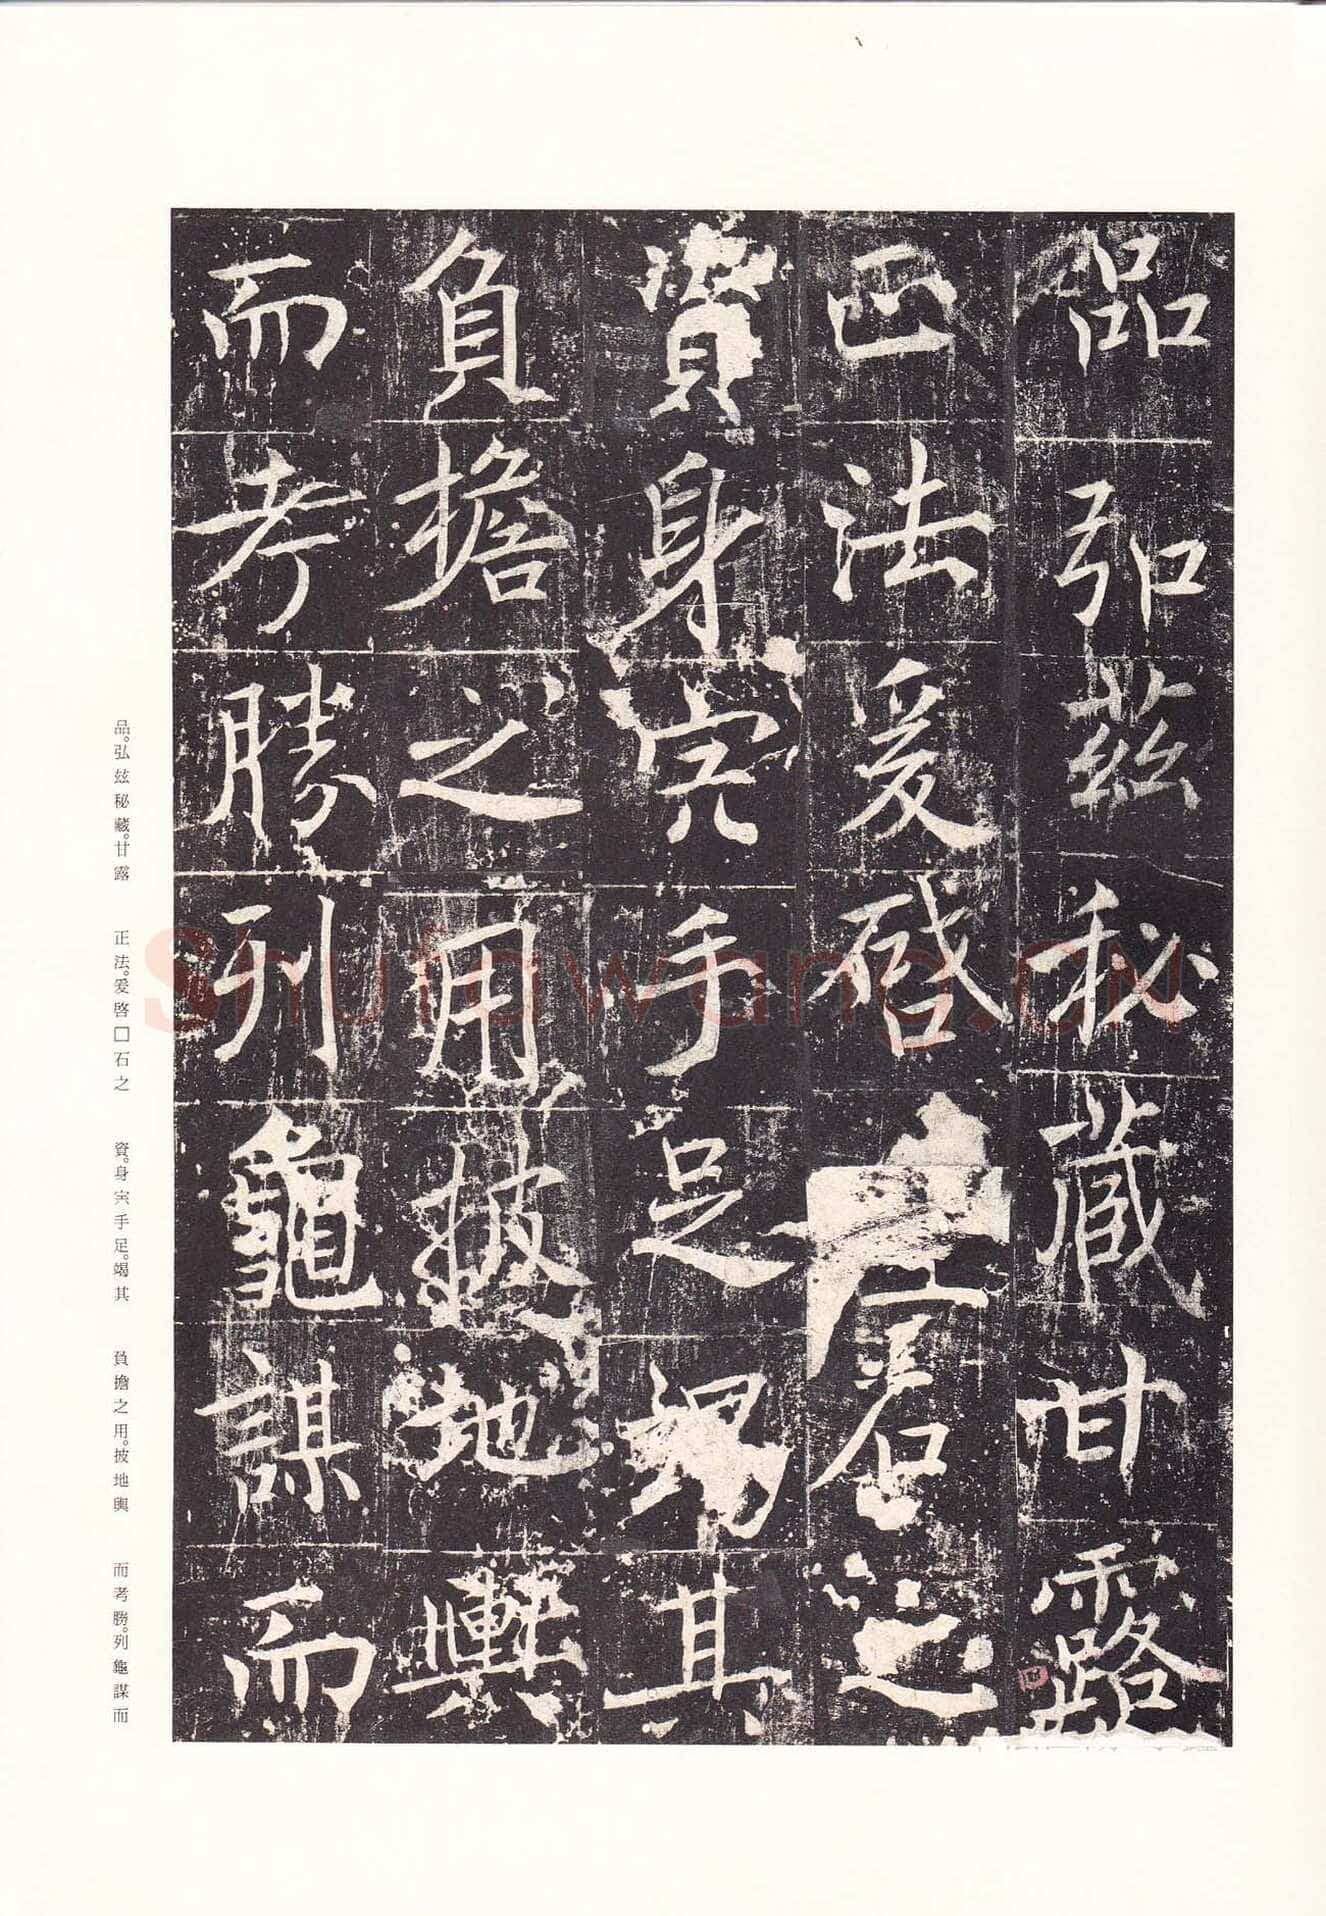 品弘茲秘藏甘露
正法爰啓石之
資身宍手足竭其
負擔之用披地輿
而考勝列龜謀而
品。弘玆秘藏。甘露
正法。爰啓□石之
資。身宍手足。竭其
負擔之用。披地輿
而考勝。列龜謀而
Shufawang.CN